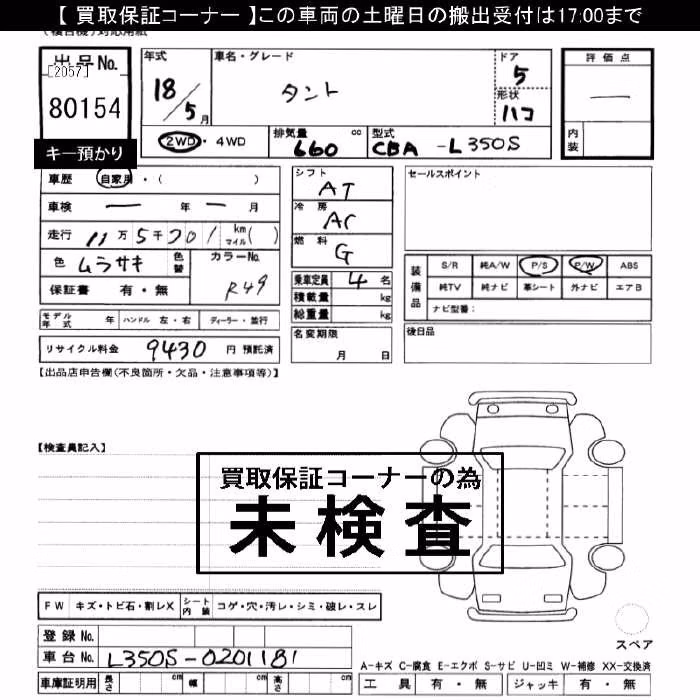 【 買取保証コーナー 】この車両の土曜日の搬出受付は17:00まで
出品No.
[2057]
80154
キー預かり
年式
18/5月
車名・グレード
タント
ドア
5
形状
ハコ
評価点
―
内装
2WD・4WD
排気量 660 cc
型式 CBA -L350S
車歴 自家用・( )
車検 ― 年 ― 月
走行 11万5千201 km マイル( )
色 ムラサキ 色替
カラーNo. R49
保証書 有・無
シフト
AT
冷房
AC
燃料
G
乗車定員 4 名
積載量 kg
総重量 kg
セールスポイント
装備品
S/R 純A/W P/S P/W ABS
純TV 純ナビ 革シート 外ナビ エアB
ナビ型番:
モデル年式 年 ハンドル 左・右 ディーラー・並行
リサイクル料金 9430 円 預託済
名変期限
月 日
後日品
【出品店申告欄(不良箇所・欠品・注意事項等)】
【検査員記入】
買取保証コーナーの為
未検査
FW キズ・トビ石・割レX シート内装 コゲ・穴・汚レ・シミ・破レ・スレ
登録No.
車台No. L350S-0201181
車庫証明用 長さ cm 幅 cm 高さ cm
スペア
A-キズ C-腐食 E-エクボ S-サビ U-凹ミ W-補修 XX-交換済
工具 有・無 ジャッキ 有・無